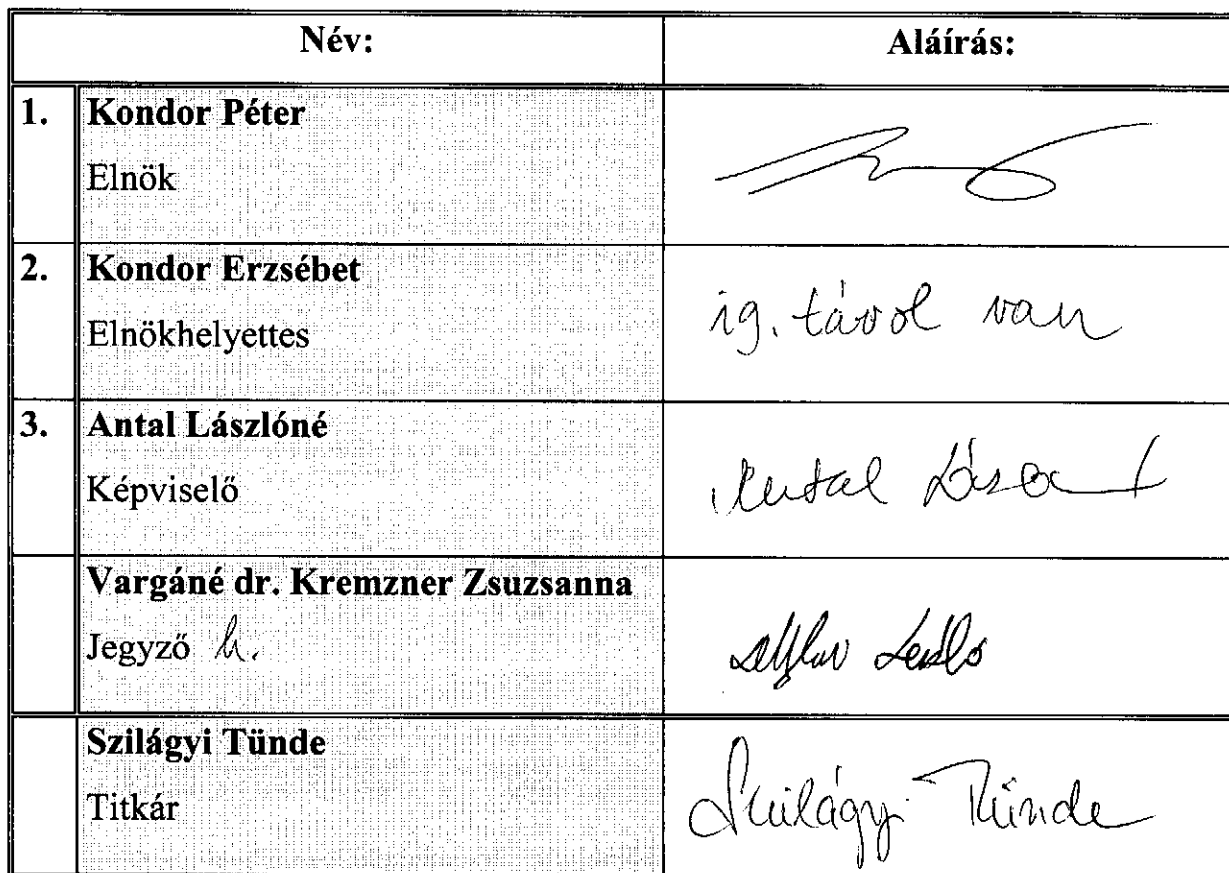 Név: Aláírás:
1. Kondor Péter
Elnök
2. Kondor Erzsébet
Elnökhelyettes ig. távol van
3. Antal Lászlóné
Képviselő Antal
Vargáné dr. Kremzner Zsuzsanna
Jegyző h.
Szilágyi Tünde
Titkár Szilágyi Tünde